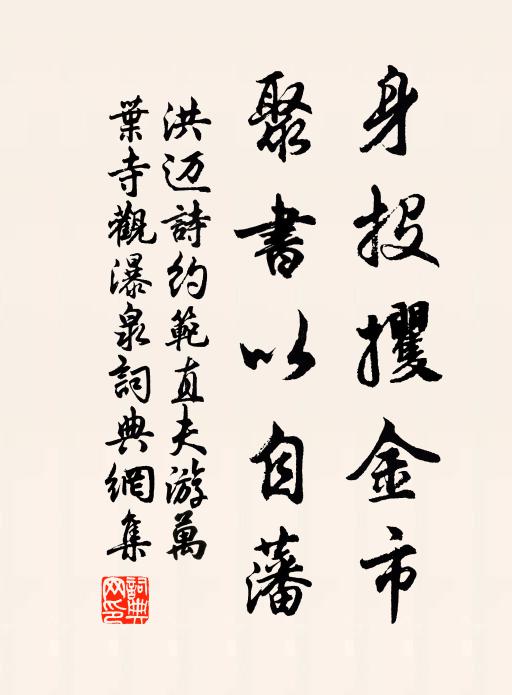 身投攫金市
聚書以自藩
洪迈詩约範直夫游萬
葉寺觀瀑泉詞典網集
詞典網印